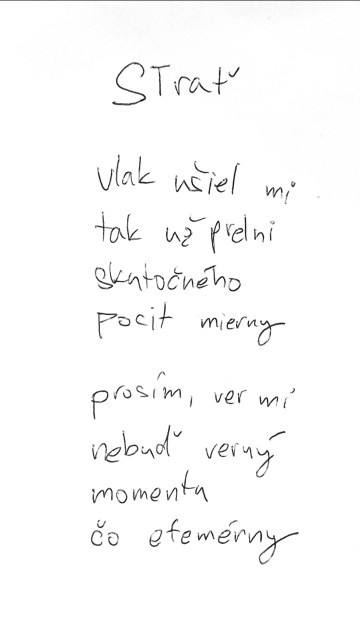 Strať
vlak ušiel mi
tak už prelni
skutočného
pocit mierny
prosím, ver mi
nebuď verný
momentu
čo efemérny